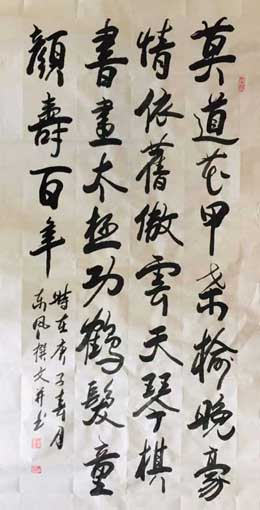 莫道花甲桑榆晚豪
情依舊傲雲天琴棋
書畫太極功鶴髮童
顏壽百年
時在庚子春月
东风撰文并书